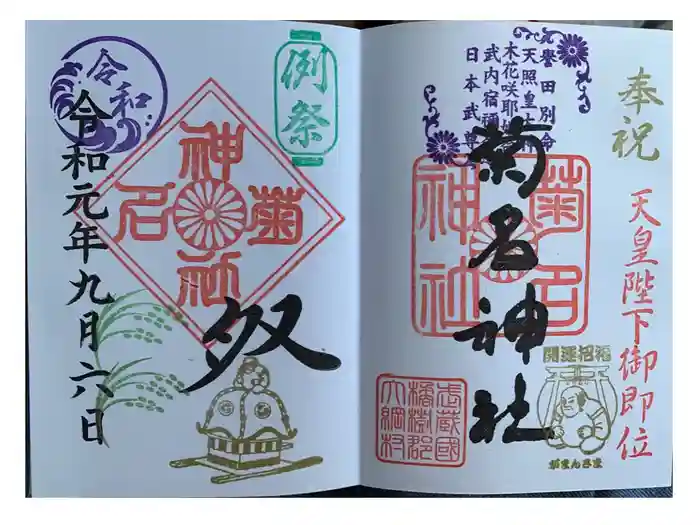 奉祝
天皇陛下御即位
譽田別命
天照皇
木花咲耶
武内宿禰
日本武尊
菊名
神社
菊名神社
開運招福
がまんさま
武蔵國
橘樹郡
大綱村
例祭
神社
菊名
令和
令和元年九月六日